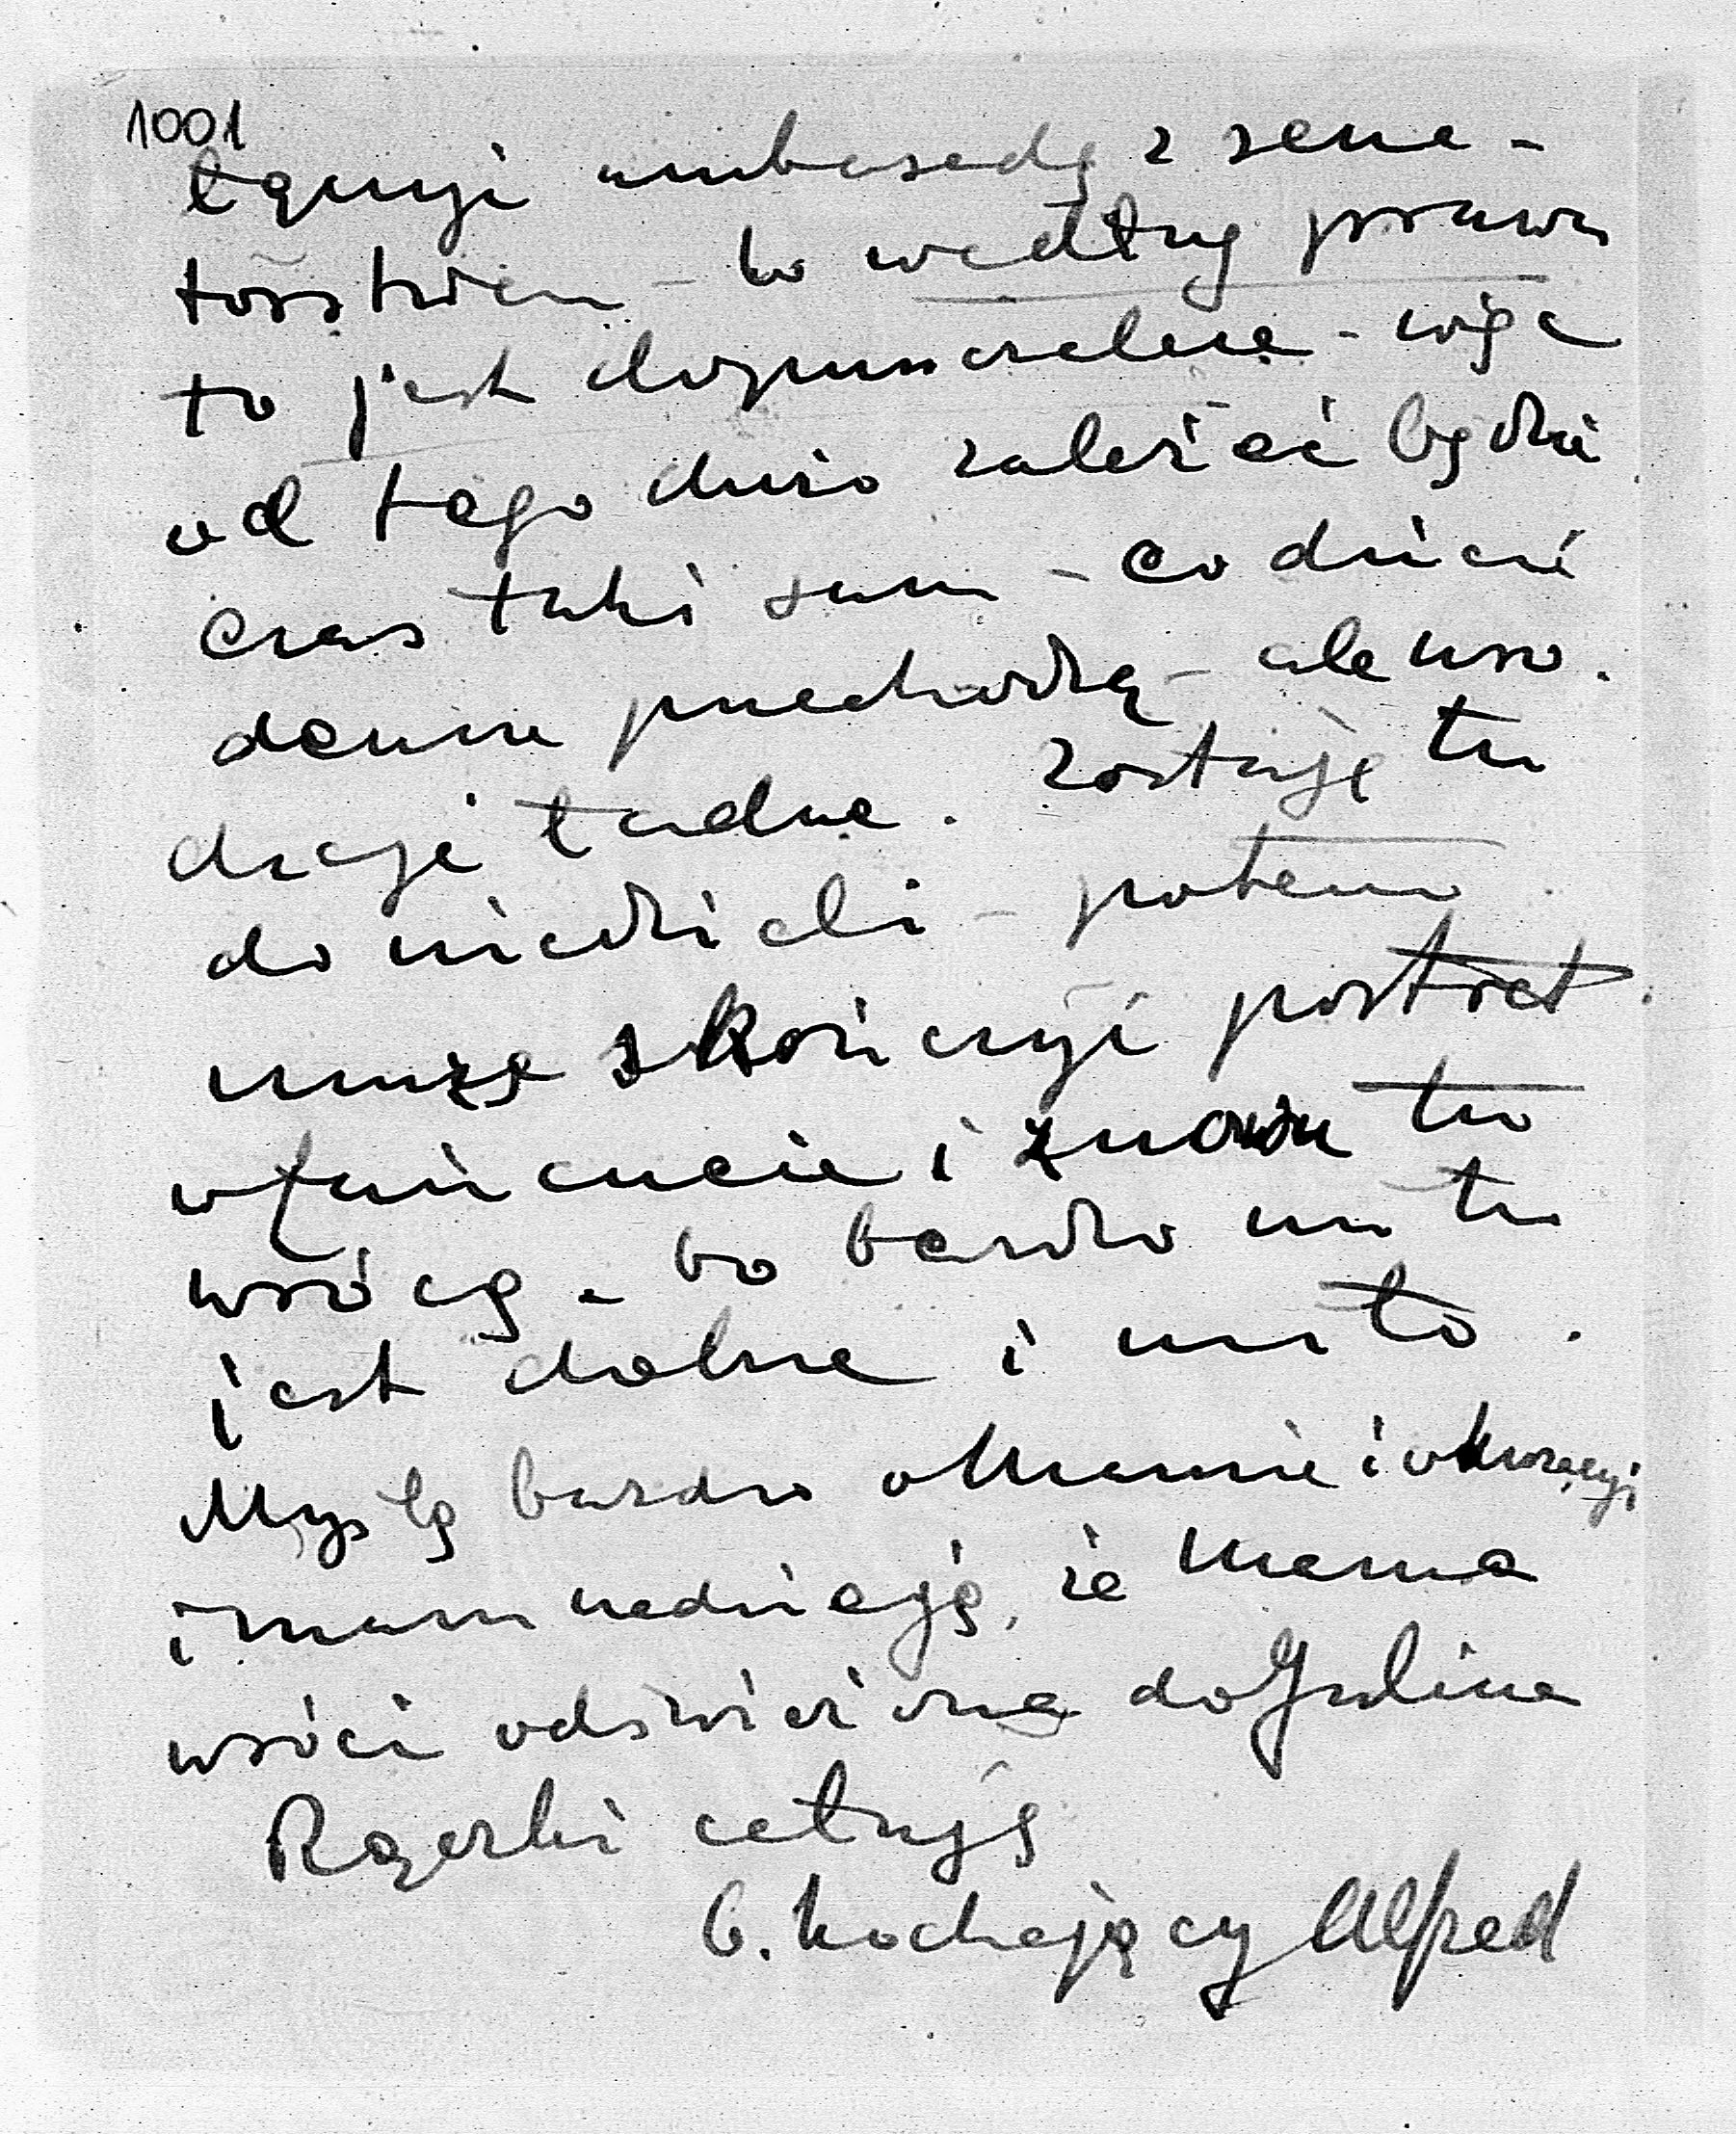 1001
łączyć ambasadę z sena-
torstwem – bo według prawa
to jest dopuszczalne – więc
od tego dużo zależeć będzie
Czas taki sam – codzień
deszcze przechodzą – ale uro-
dzaje ładne. Zostaję tu
do niedzieli – potem
muszę skończyć portret
w Łańcucie i znowu tu
wrócę – bo bardzo mi tu
jest dobrze i miło.
Myślę bardzo o Mamie i o kuracyi
i mam nadzieję, że Mama
wróci odświeżona do Julina
Rączki całuję
b. kochający Alfred